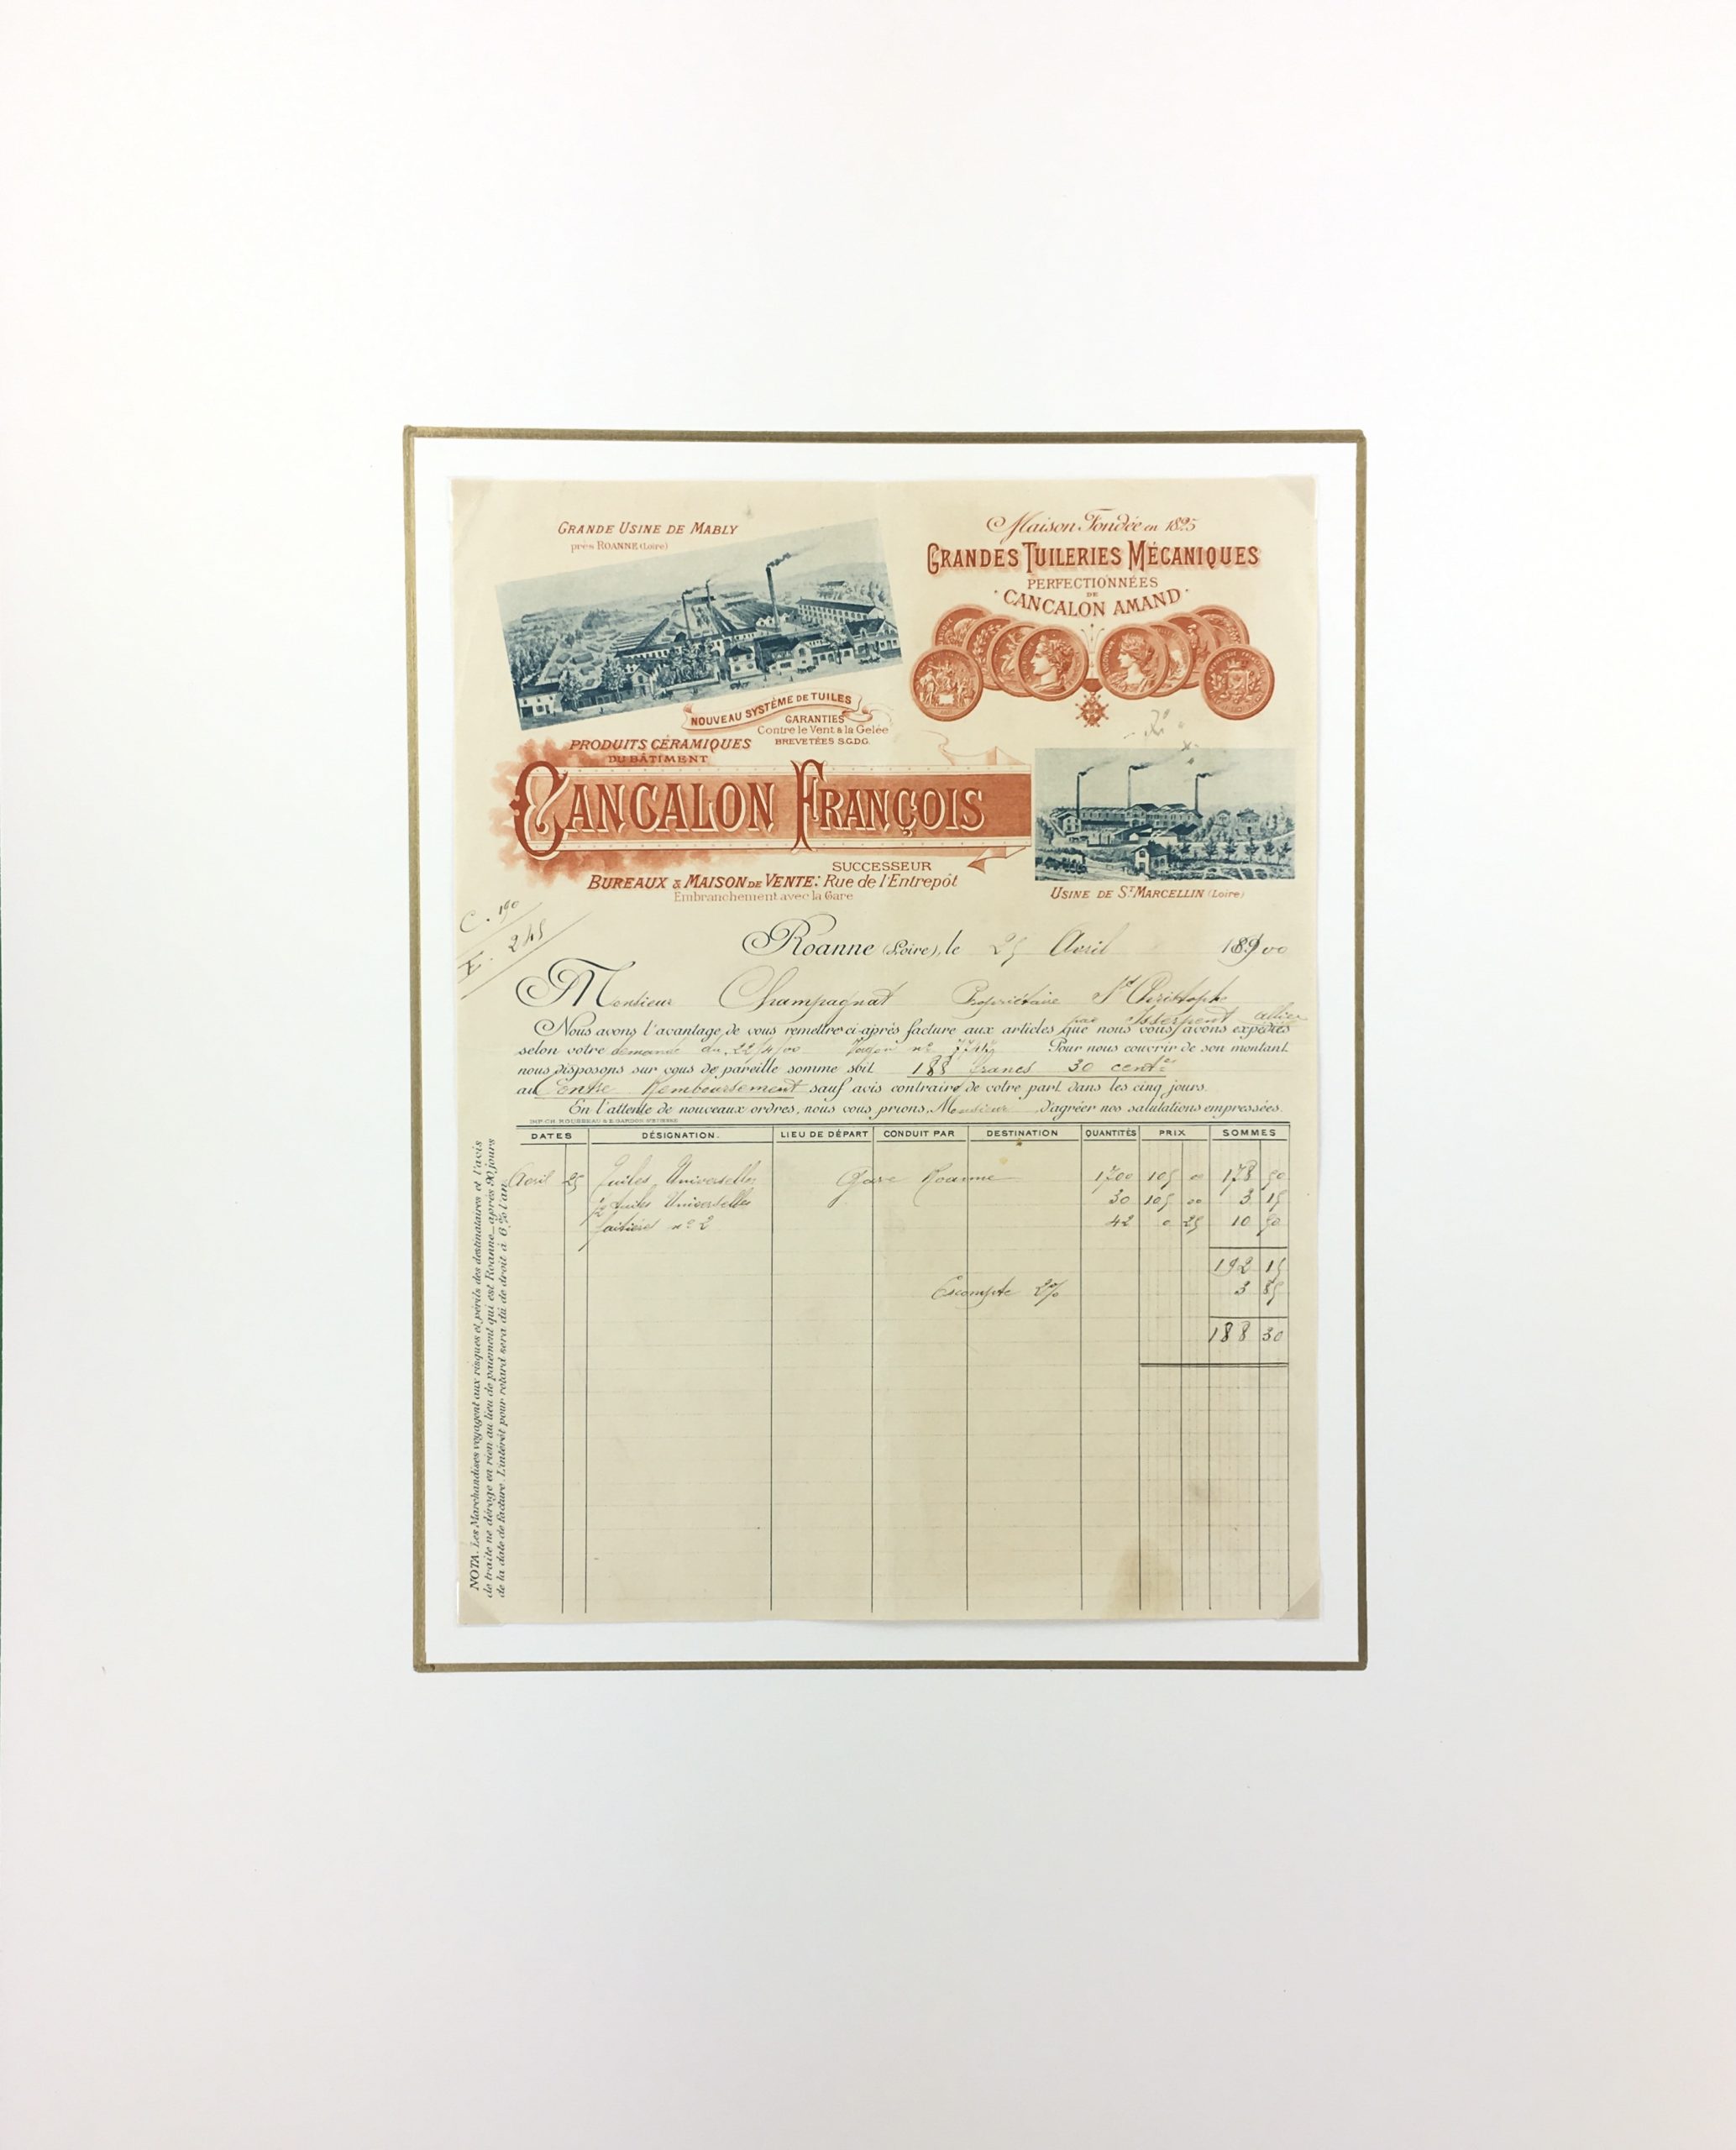 GRANDE USINE DE MABLY
près ROANNE (Loire)
Maison Fondée en 1825
GRANDES TUILERIES MÉCANIQUES
PERFECTIONNÉES
DE
CANCALON AMAND
NOUVEAU SYSTÈME DE TUILES
GARANTIES
Contre le Vent & la Gelée
BREVETÉES S.G.D.G.
PRODUITS CÉRAMIQUES
DU BÂTIMENT
CANCALON FRANÇOIS
SUCCESSEUR
BUREAUX & MAISON DE VENTE: Rue de l'Entrepôt
Embranchement avec la Gare
USINE DE ST MARCELLIN (Loire)
C. 190
245
Roanne (Loire), le 25 Avril 1900
Monsieur Champagnat Propriétaire St Christophe
par Isserpent Allier
Nous avons l'avantage de vous remettre ci-après facture aux articles que nous vous avons expédiés
selon votre demande du 22/4/00 Wagon no Pour nous couvrir de son montant
nous disposons sur vous de pareille somme soit 188 francs 30 centes
au Contre Remboursement sauf avis contraire de votre part dans les cinq jours.
En l'attente de nouveaux ordres, nous vous prions, Monsieur d'agréer nos salutations empressées.
IMP. CH. ROUSSEAU & E. GARDON ST ETIENNE
DATES DÉSIGNATION. LIEU DE DÉPART CONDUIT PAR DESTINATION QUANTITÉS PRIX SOMMES
Avril 25 Tuiles Universelles Gare Roanne 1700 105 00 178 50
1/2 Tuiles Universelles 30 105 00 3 15
faitières no 2 42 0 25 10 50
192 15
Escompte 2% 3 85
188 30
NOTA. Les Marchandises voyagent aux risques et périls des destinataires et l'avis
de traite ne déroge en rien au lieu de paiement qui est Roanne_après 90 jours
de la date de facture. L'intérêt pour retard sera dû de droit à 6 % l'an.